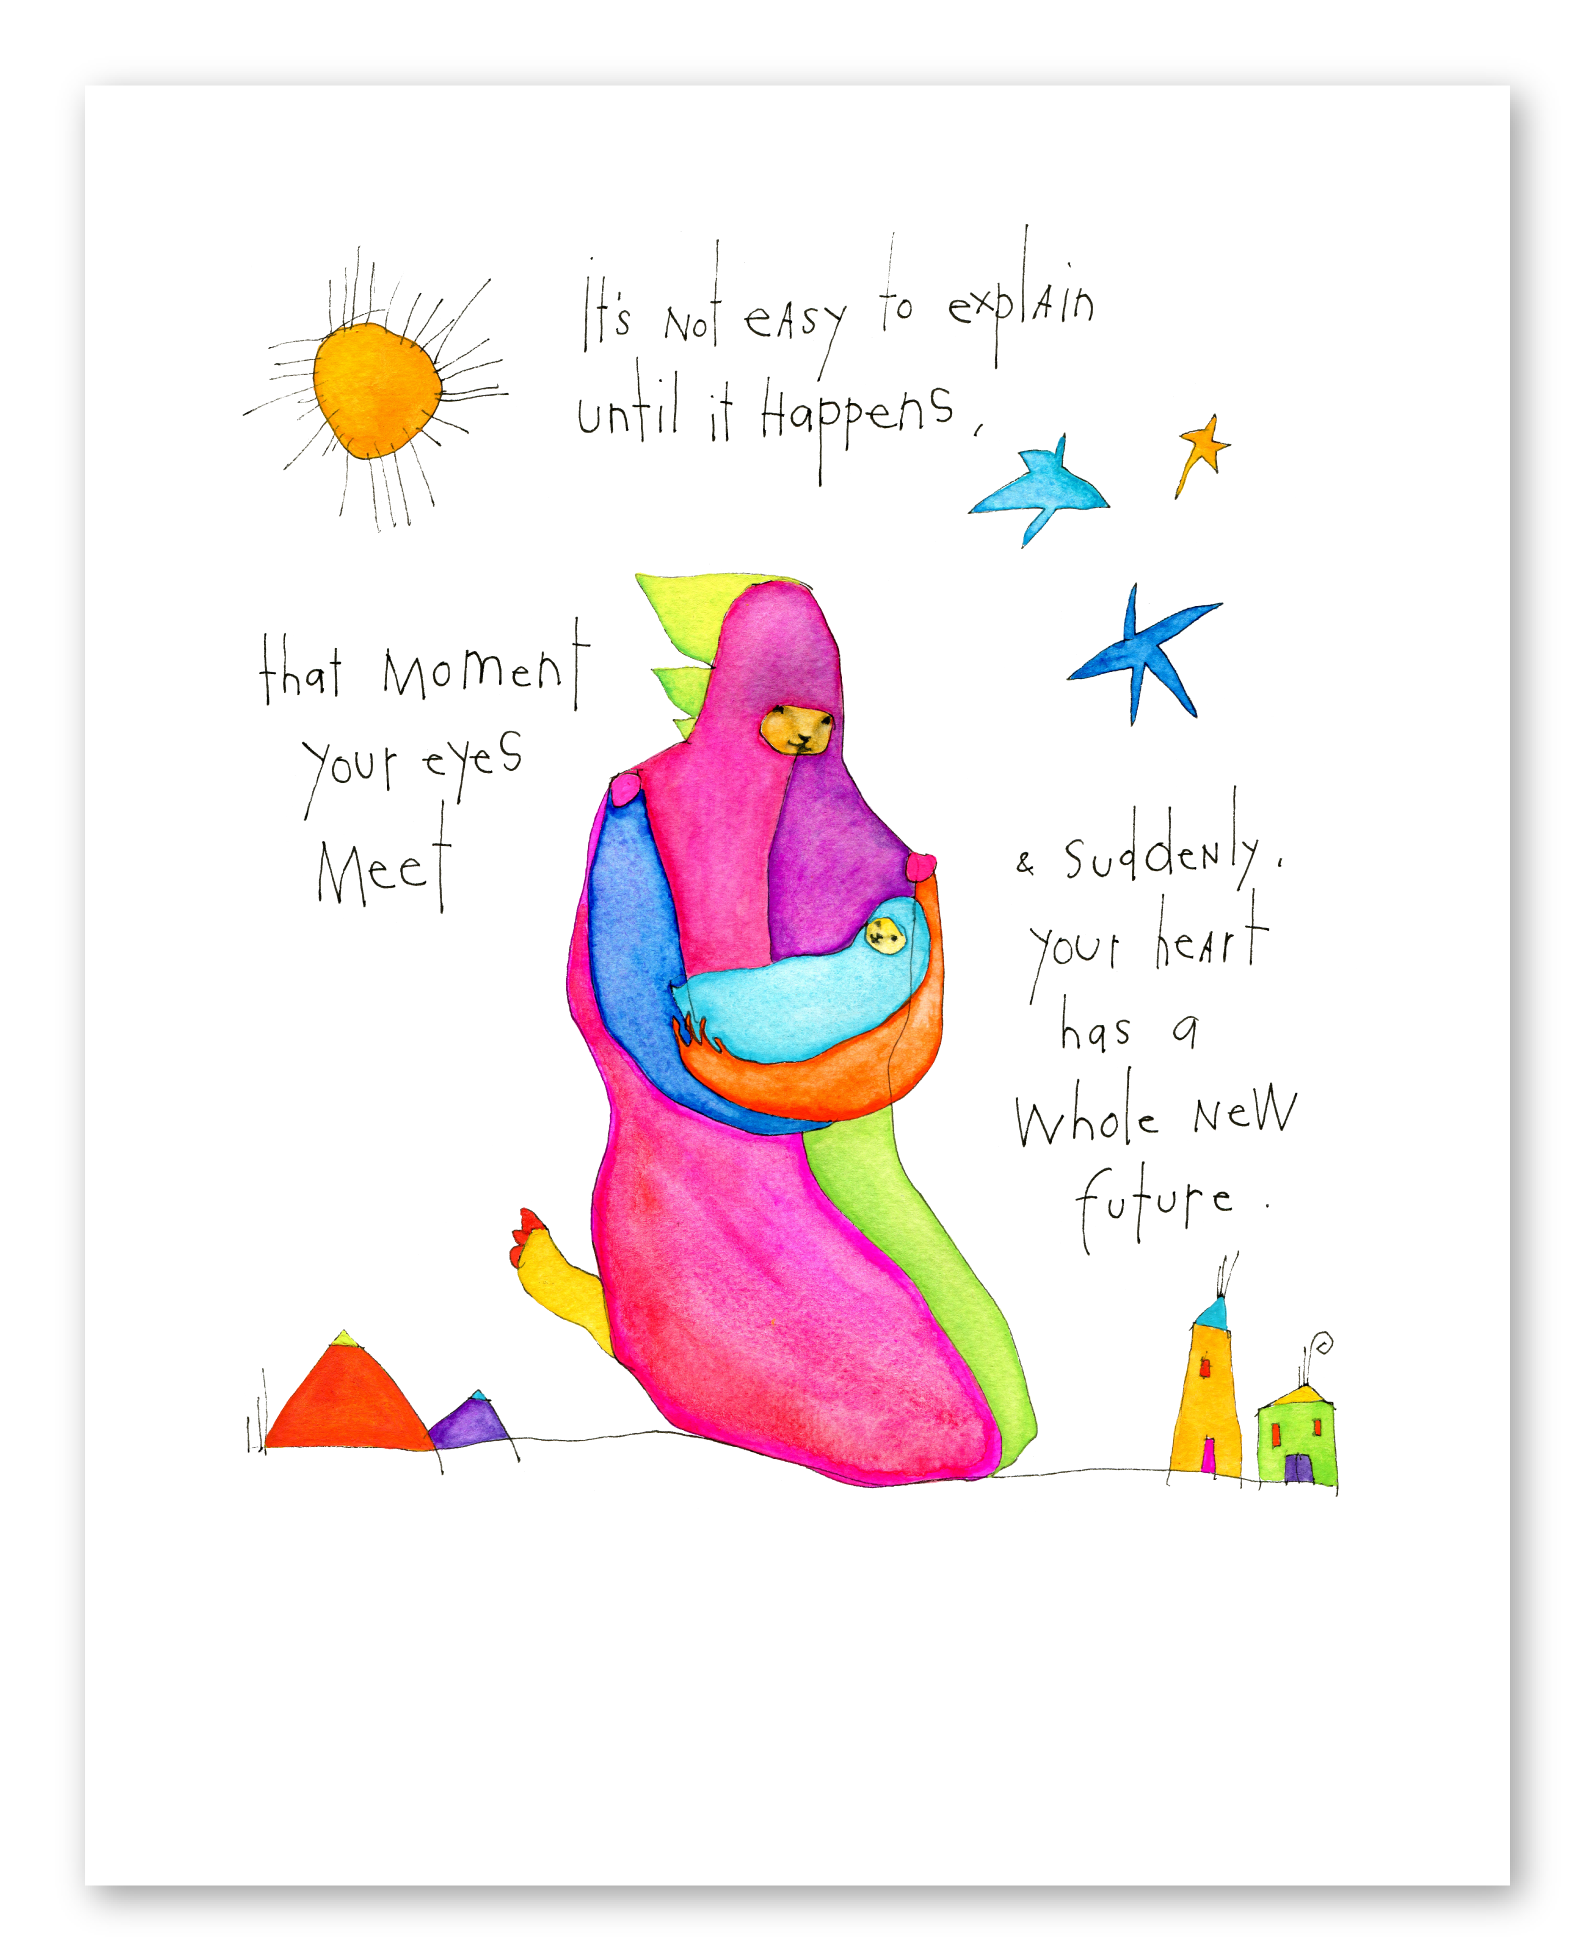 it's Not eAsy to explAin
until it Happens,
that Moment
your eyes
Meet
& suddenly,
your heArt
has a
whole NeW
future.